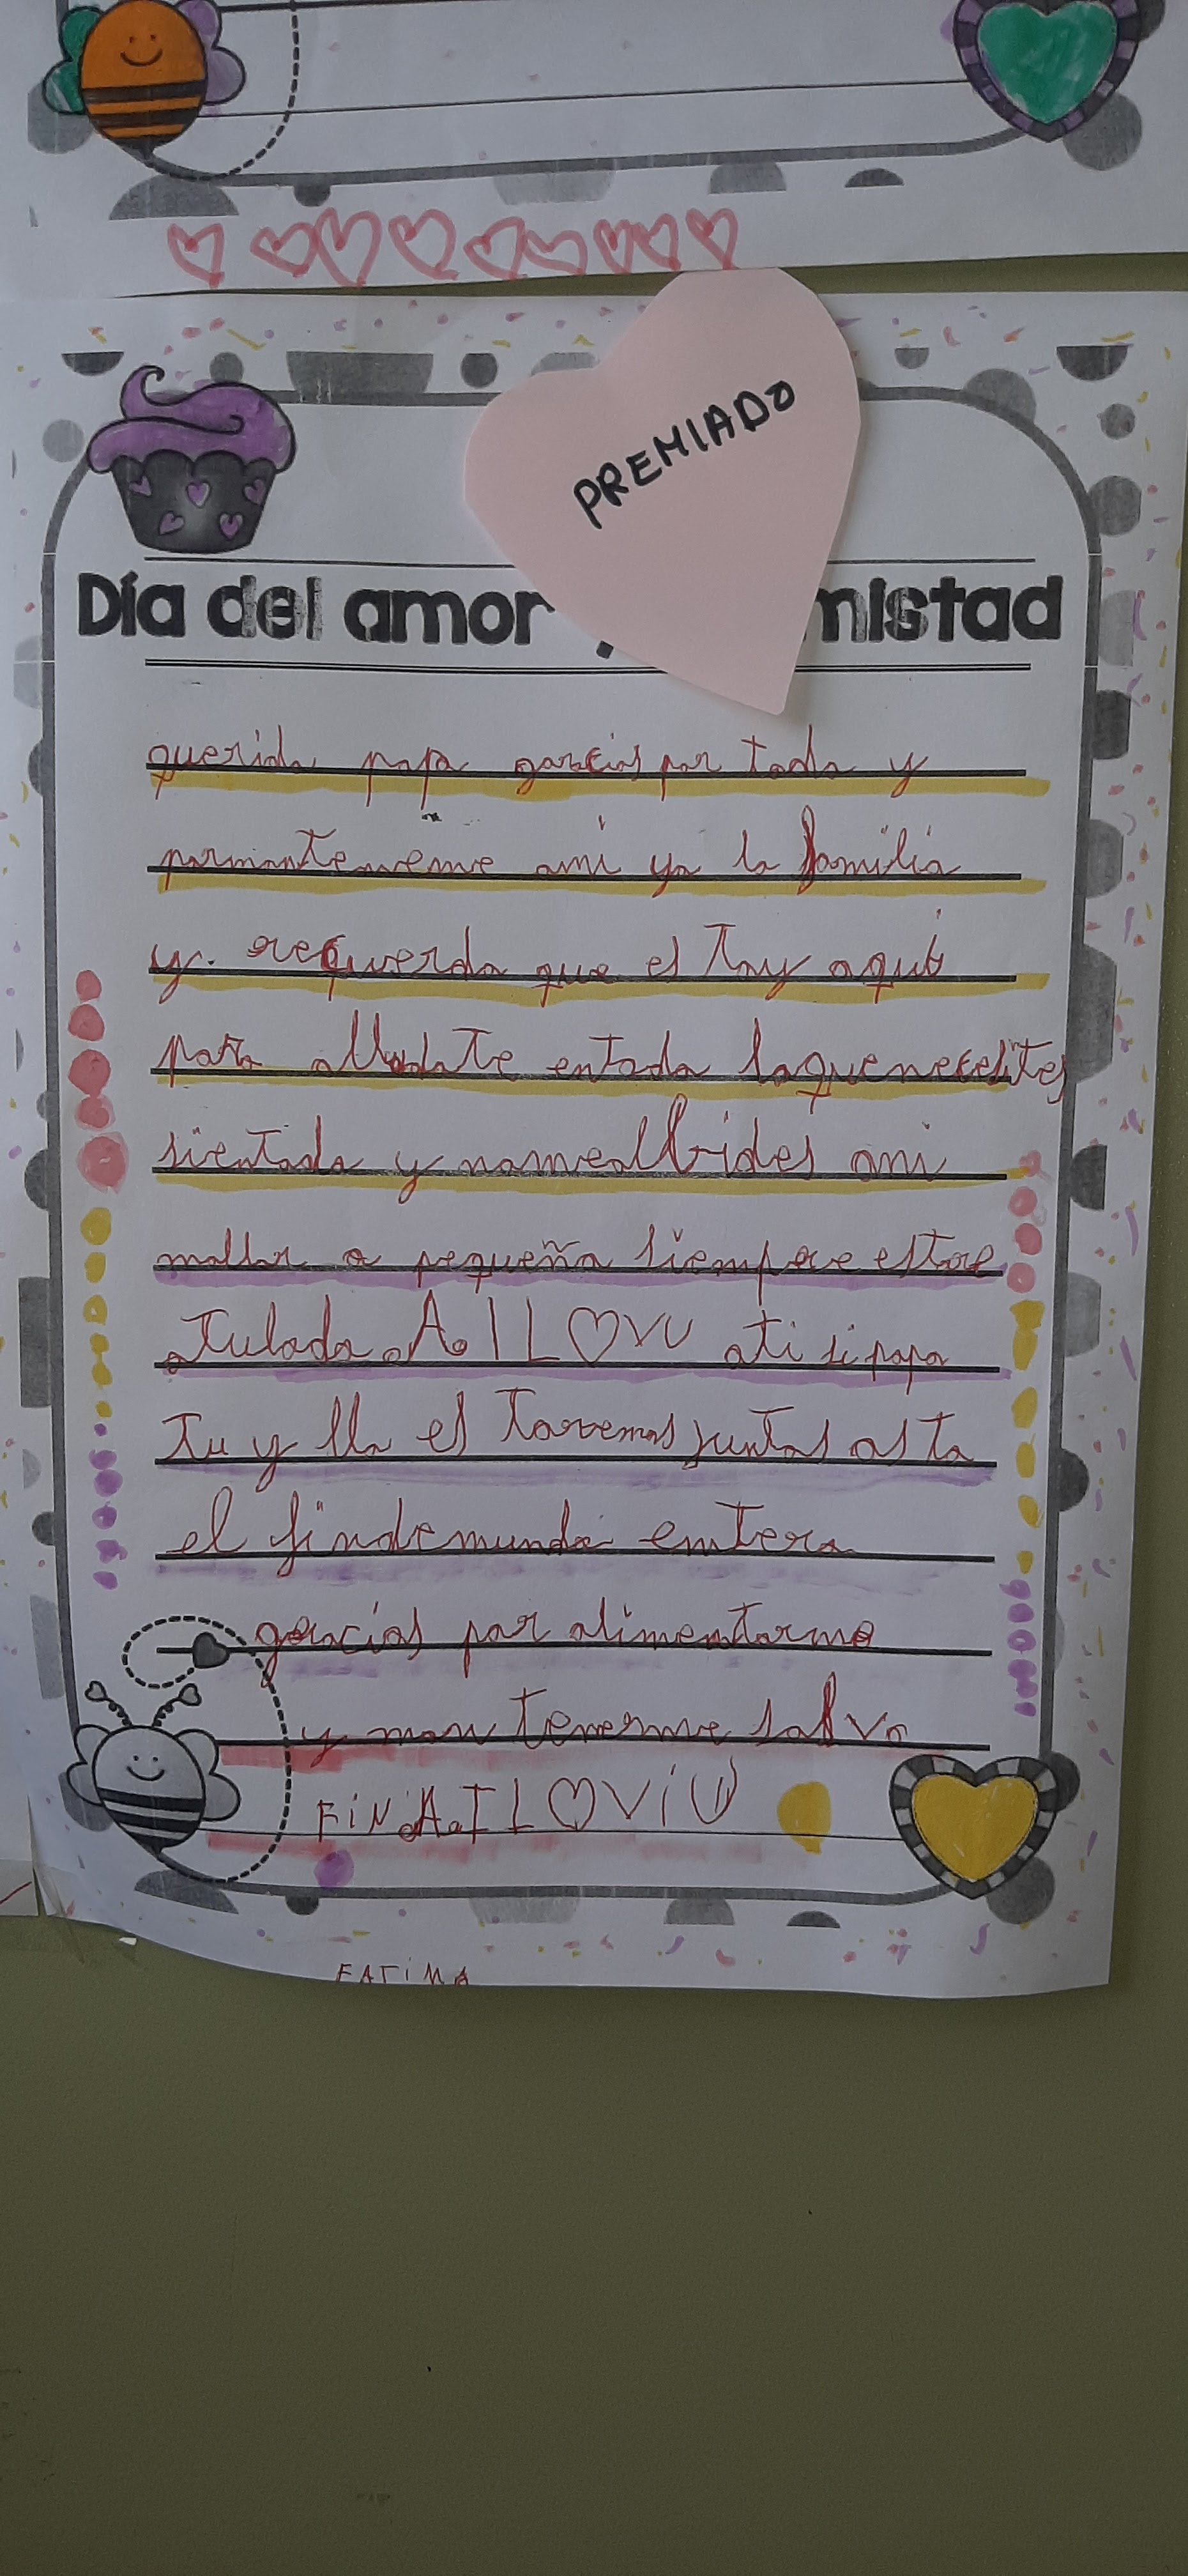 PREMIADO
Día del amor y mistad
querido papa garcias por todo y
parmantenerme ami ya la familia
y. requerda que es Toy aqui
para alludarte entodo loquenecesites
sientodo y nomeollvides ami
mallor o pequeña siempre estare
atulado. A. I L♡VU ati si papa
Tu y llo es Taremos juntos as ta
el findemundo entero
gracias por alimentarme
y man tenerme salvo
FiN A. I L♡ViU
FATiMA